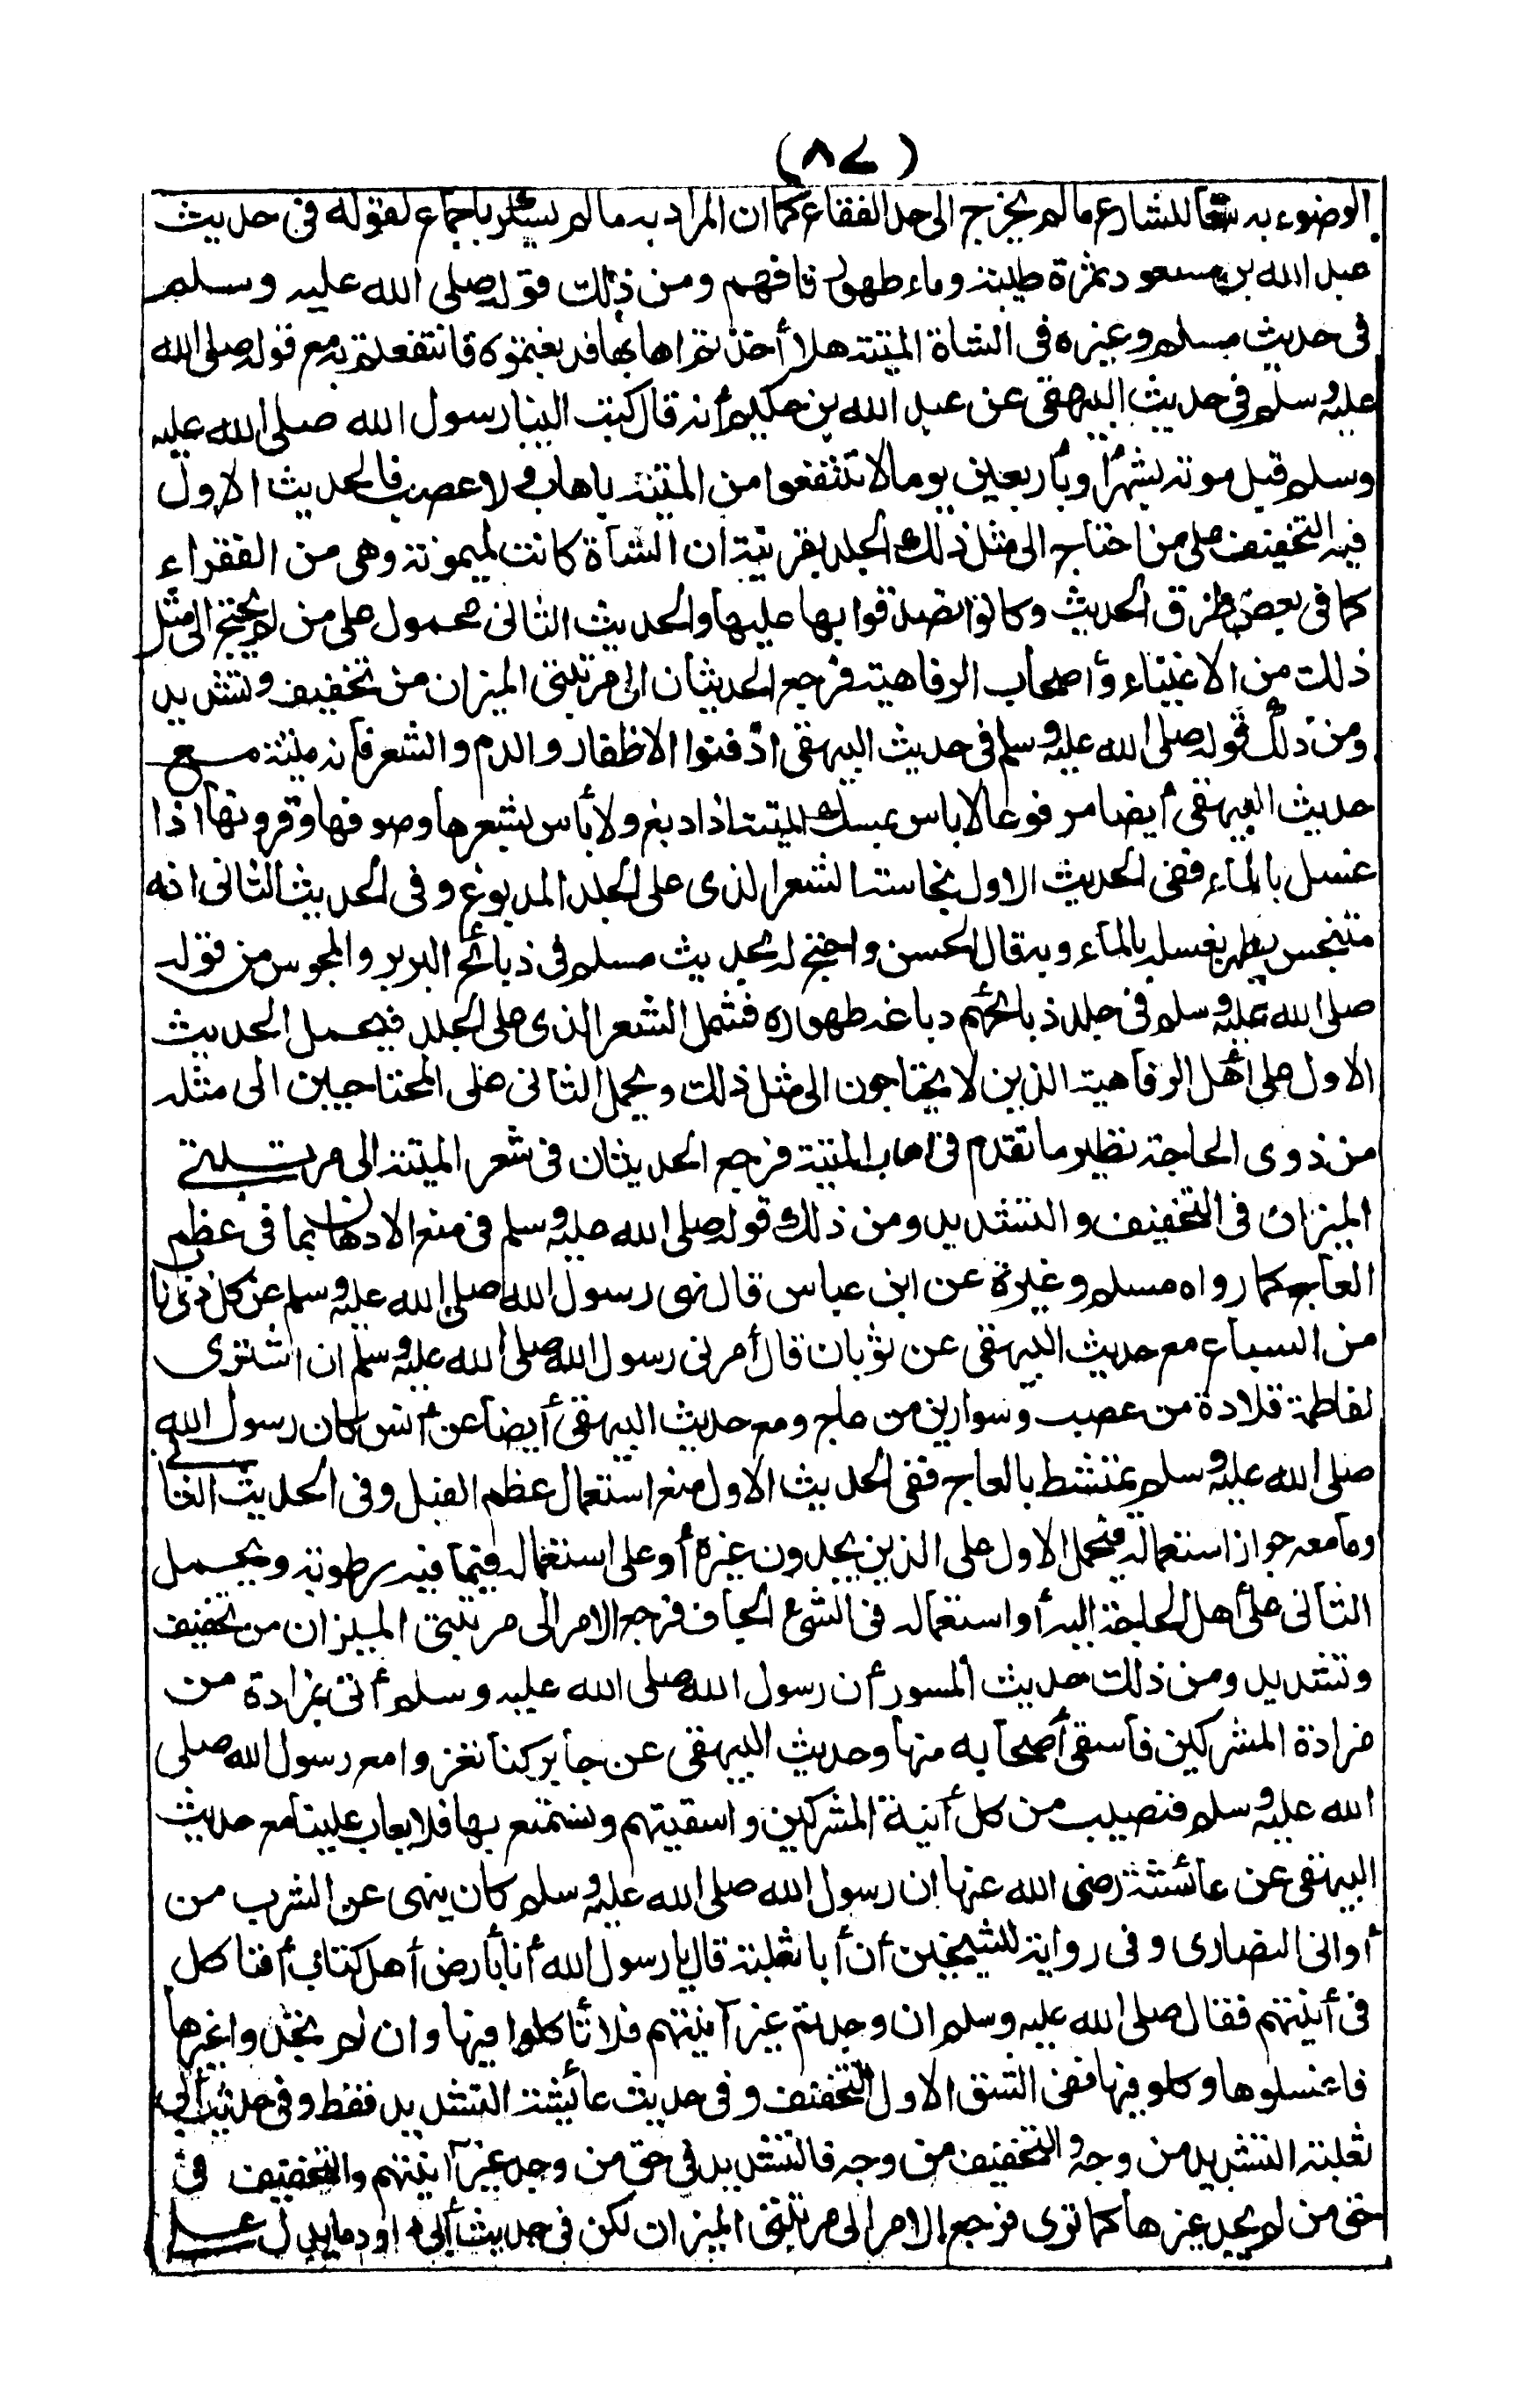 (٨٧)
الوضوء به تبعا للشارع ما لم يخرج الى حد الفقاع كما ان المراد به ما لم يسكر باجماع لقوله فى حديث
عبد الله بن مسعود تمرة طيبة وماء طهور فافهم ومن ذلك قوله صلى الله عليه وسلم
فى حديث مسلم وغيره فى الشاة الميتة هلا أخذتم اهابها فدبغتموه فانتفعتم به مع قوله صلى الله
عليه وسلم فى حديث البيهقى عن عبد الله بن حكيم أنه قال كتب الينا رسول الله صلى الله عليه
وسلم قبل موته بشهر أو بأربعين يوما لا تنتفعوا من الميتة باهاب ولا عصب فالحديث الاول
فيه التخفيف على من احتاج الى مثل ذلك الجلد بقرينة ان الشاة كانت لميمونة وهى من الفقراء
كما فى بعض طرق الحديث وكانوا تصدقوا بها عليها والحديث الثانى محمول على من لم يحتج الى مثل
ذلك من الاغنياء وأصحاب الرفاهية فرجع الحديثان الى مرتبتى الميزان من تخفيف وتشديد
ومن ذلك قوله صلى الله عليه وسلم فى حديث البيهقى ادفنوا الاظفار والدم والشعر فانه ميتة مع
حديث البيهقى أيضا مرفوعا لا باس بمسك الميتة اذا دبغ ولا بأس بشعرها وصوفها وقرونها اذا
غسل بالماء ففى الحديث الاول نجاسة الشعر الذى على الجلد المدبوغ وفى الحديث الثانى انه
متنجس يطهر بغسله بالماء وبه قال الحسن واحتج له بحديث مسلم فى ذبائح البربر والمجوس من قوله
صلى الله عليه وسلم فى جلد ذبائحهم دباغه طهوره فشمل الشعر الذى على الجلد فيحمل الحديث
الاول على أهل الرفاهية الذين لا يحتاجون الى مثل ذلك ويحمل الثانى على المحتاجين الى مثله
من ذوى الحاجة نظير ما تقدم فى اهاب الميتة فرجع الحديثان فى شعر الميتة الى مرتبتى
الميزان فى التخفيف والتشديد ومن ذلك قوله صلى الله عليه وسلم فى منع الادهان بما فى عظم
العاج كما رواه مسلم وغيره عن ابن عباس قال نهى رسول الله صلى الله عليه وسلم عن كل ذى ناب
من السباع مع حديث البيهقى عن ثوبان قال أمرنى رسول الله صلى الله عليه وسلم ان اشترى
لفاطمة قلادة من عصب وسوارين من عاج ومع حديث البيهقى أيضا عن أنس كان رسول الله
صلى الله عليه وسلم يمتشط بالعاج ففى الحديث الاول منع استعمال عظم الفيل وفى الحديث الثانى
وما معه جواز استعماله فيحمل الاول على الذين يجدون غيره أو على استعماله فيما فيه رطوبة ويحمل
الثانى على أهل الحاجة اليه أو استعماله فى الشئ الجاف فرجع الامر الى مرتبتى الميزان من تخفيف
وتشديد ومن ذلك حديث المسور أن رسول الله صلى الله عليه وسلم أتى بمزادة من
مزادة المشركين فأسقى أصحابه منها وحديث البيهقى عن جابر كنا نغزوا مع رسول الله صلى
الله عليه وسلم فنصيب من كل آنية المشركين واسقيتهم ونستمتع بها فلا يعاب علينا مع حديث
البيهقى عن عائشة رضى الله عنها ان رسول الله صلى الله عليه وسلم كان ينهى عن الشرب من
أوانى النصارى وفى رواية للشيخين أن أبا ثعلبة قال يا رسول الله أنا بأرض أهل كتاب أفنا كل
فى آنيتهم فقال صلى الله عليه وسلم ان وجدتم غير آنيتهم فلا تأكلوا فيها وان لم تجدوا غيرها
فاغسلوها وكلوا فيها ففى الشق الاول التخفيف وفى حديث عائشة التشديد فقط وفى حديث أبى
ثعلبة التشديد من وجه والتخفيف من وجه فالتشديد فى حق من وجد غير آنيتهم والتخفيف فى
حق من لم يجد غيرها كما ترى فرجع الامر الى مرتبتى الميزان لكن فى حديث أبى داود ما يدل على